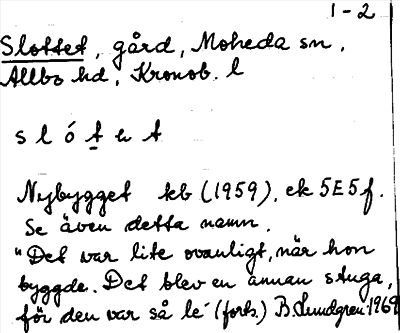 1-2
Slottet, gård, Moheda sn,
Allbo hd, Kronob. l
s l ó t e t
Nybygget kb (1959), ek 5E5f.
Se även detta namn.
"Det var lite ovanligt, när hon
byggde. Det blev en annan stuga,
för den var så le´ (forts.) B. Lundgren 1969